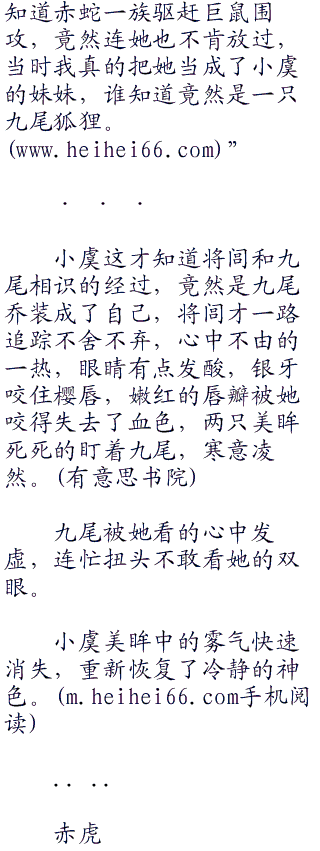 知道赤蛇一族驱赶巨鼠围
攻，竟然连她也不肯放过，
当时我真的把她当成了小虞
的妹妹，谁知道竟然是一只
九尾狐狸。
(www.heihei66.com)”
. . .
小虞这才知道将闾和九
尾相识的经过，竟然是九尾
乔装成了自己，将闾才一路
追踪不舍不弃，心中不由的
一热，眼睛有点发酸，银牙
咬住樱唇，嫩红的唇瓣被她
咬得失去了血色，两只美眸
死死的盯着九尾，寒意凌
然。(有意思书院)
九尾被她看的心中发
虚，连忙扭头不敢看她的双
眼。
小虞美眸中的雾气快速
消失，重新恢复了冷静的神
色。(m.heihei66.com手机阅
读)
.. ..
赤虎